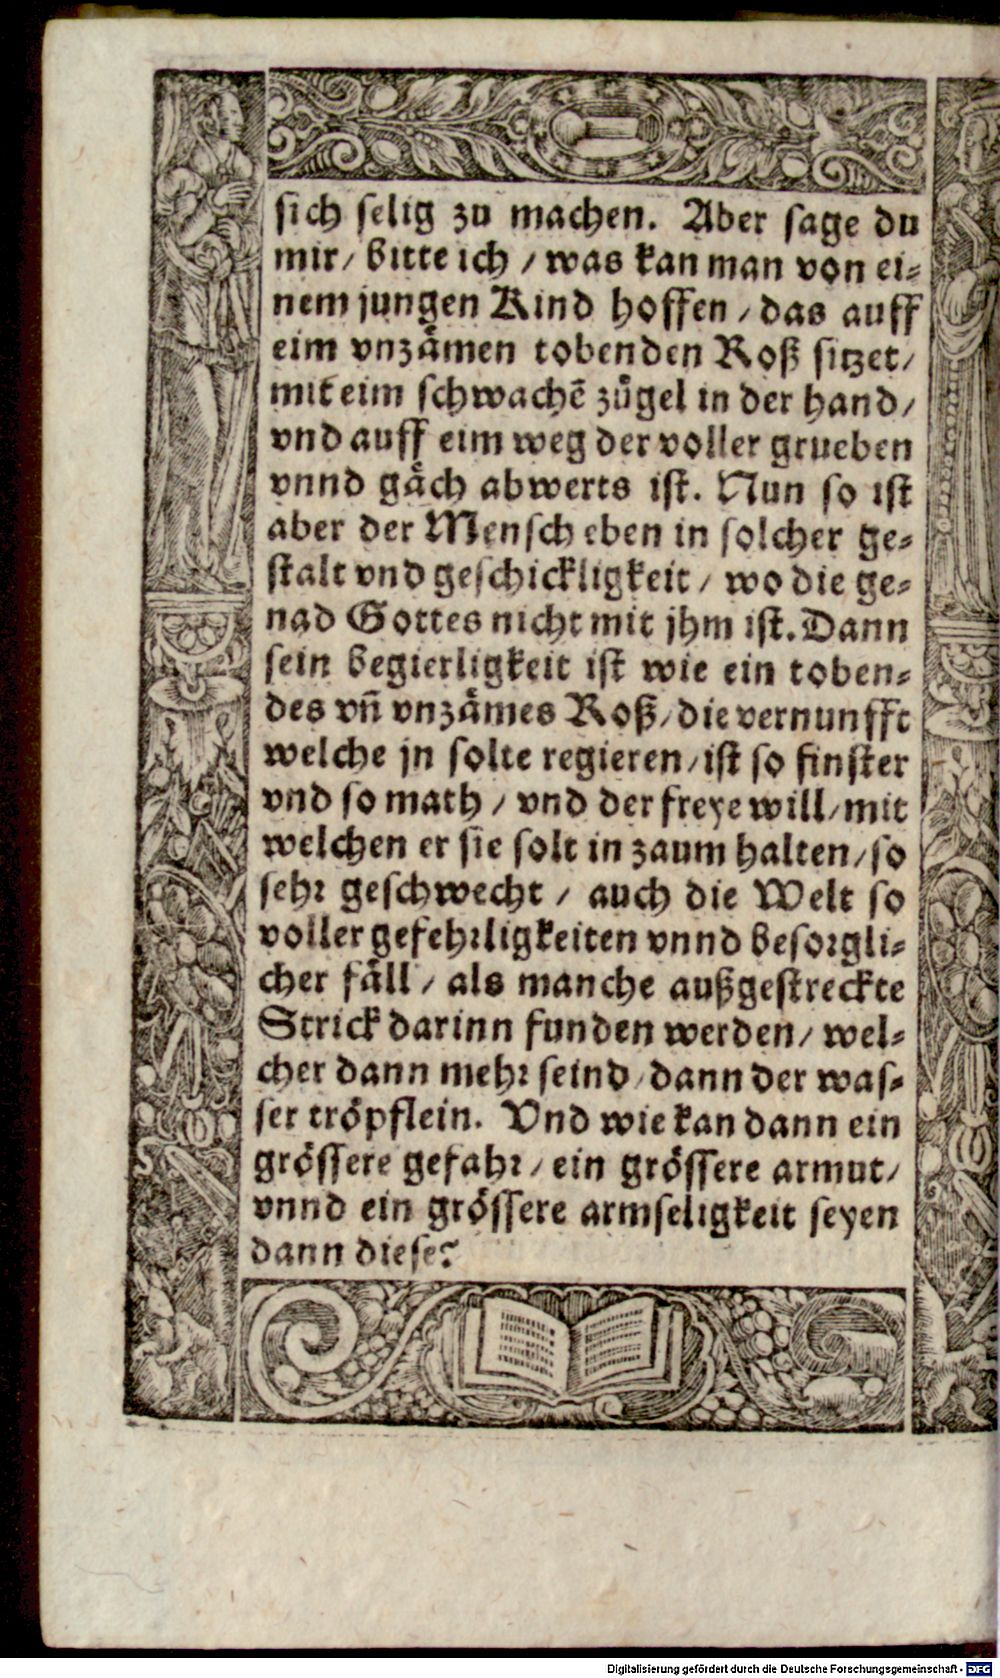 sich selig zu machen. Aber sage du
mir/ bitte ich / was kan man von ei⸗
nem jungen Kind hoffen / das auff
eim vnzämen tobenden Roß sitzet/
mit eim schwachē zügel in der hand/
vnd auff eim weg der voller grueben
vnnd gäch abwerts ist. Nun so ist
aber der Mensch eben in solcher ge⸗
stalt vnd geschickligkeit / wo die ge⸗
nad Gottes nicht mit jhm ist. Dann
sein begierligkeit ist wie ein toben⸗
des vñ vnzämes Roß/ die vernunfft
welche jn solte regieren/ ist so finster
vnd so math / vnd der freye will/ mit
welchen er sie solt in zaum halten/ so
sehr geschwecht / auch die Welt so
voller gefehrligkeiten vnnd besorgli⸗
cher fäll / als manche außgestreckte
Strick darinn funden werden/ wel⸗
cher dann mehr seind/ dann der was⸗
ser tröpflein. Vnd wie kan dann ein
grössere gefahr / ein grössere armut/
vnnd ein grössere armseligkeit seyen
dann diese?
Digitalisierung gefördert durch die Deutsche Forschungsgemeinschaft - DFG